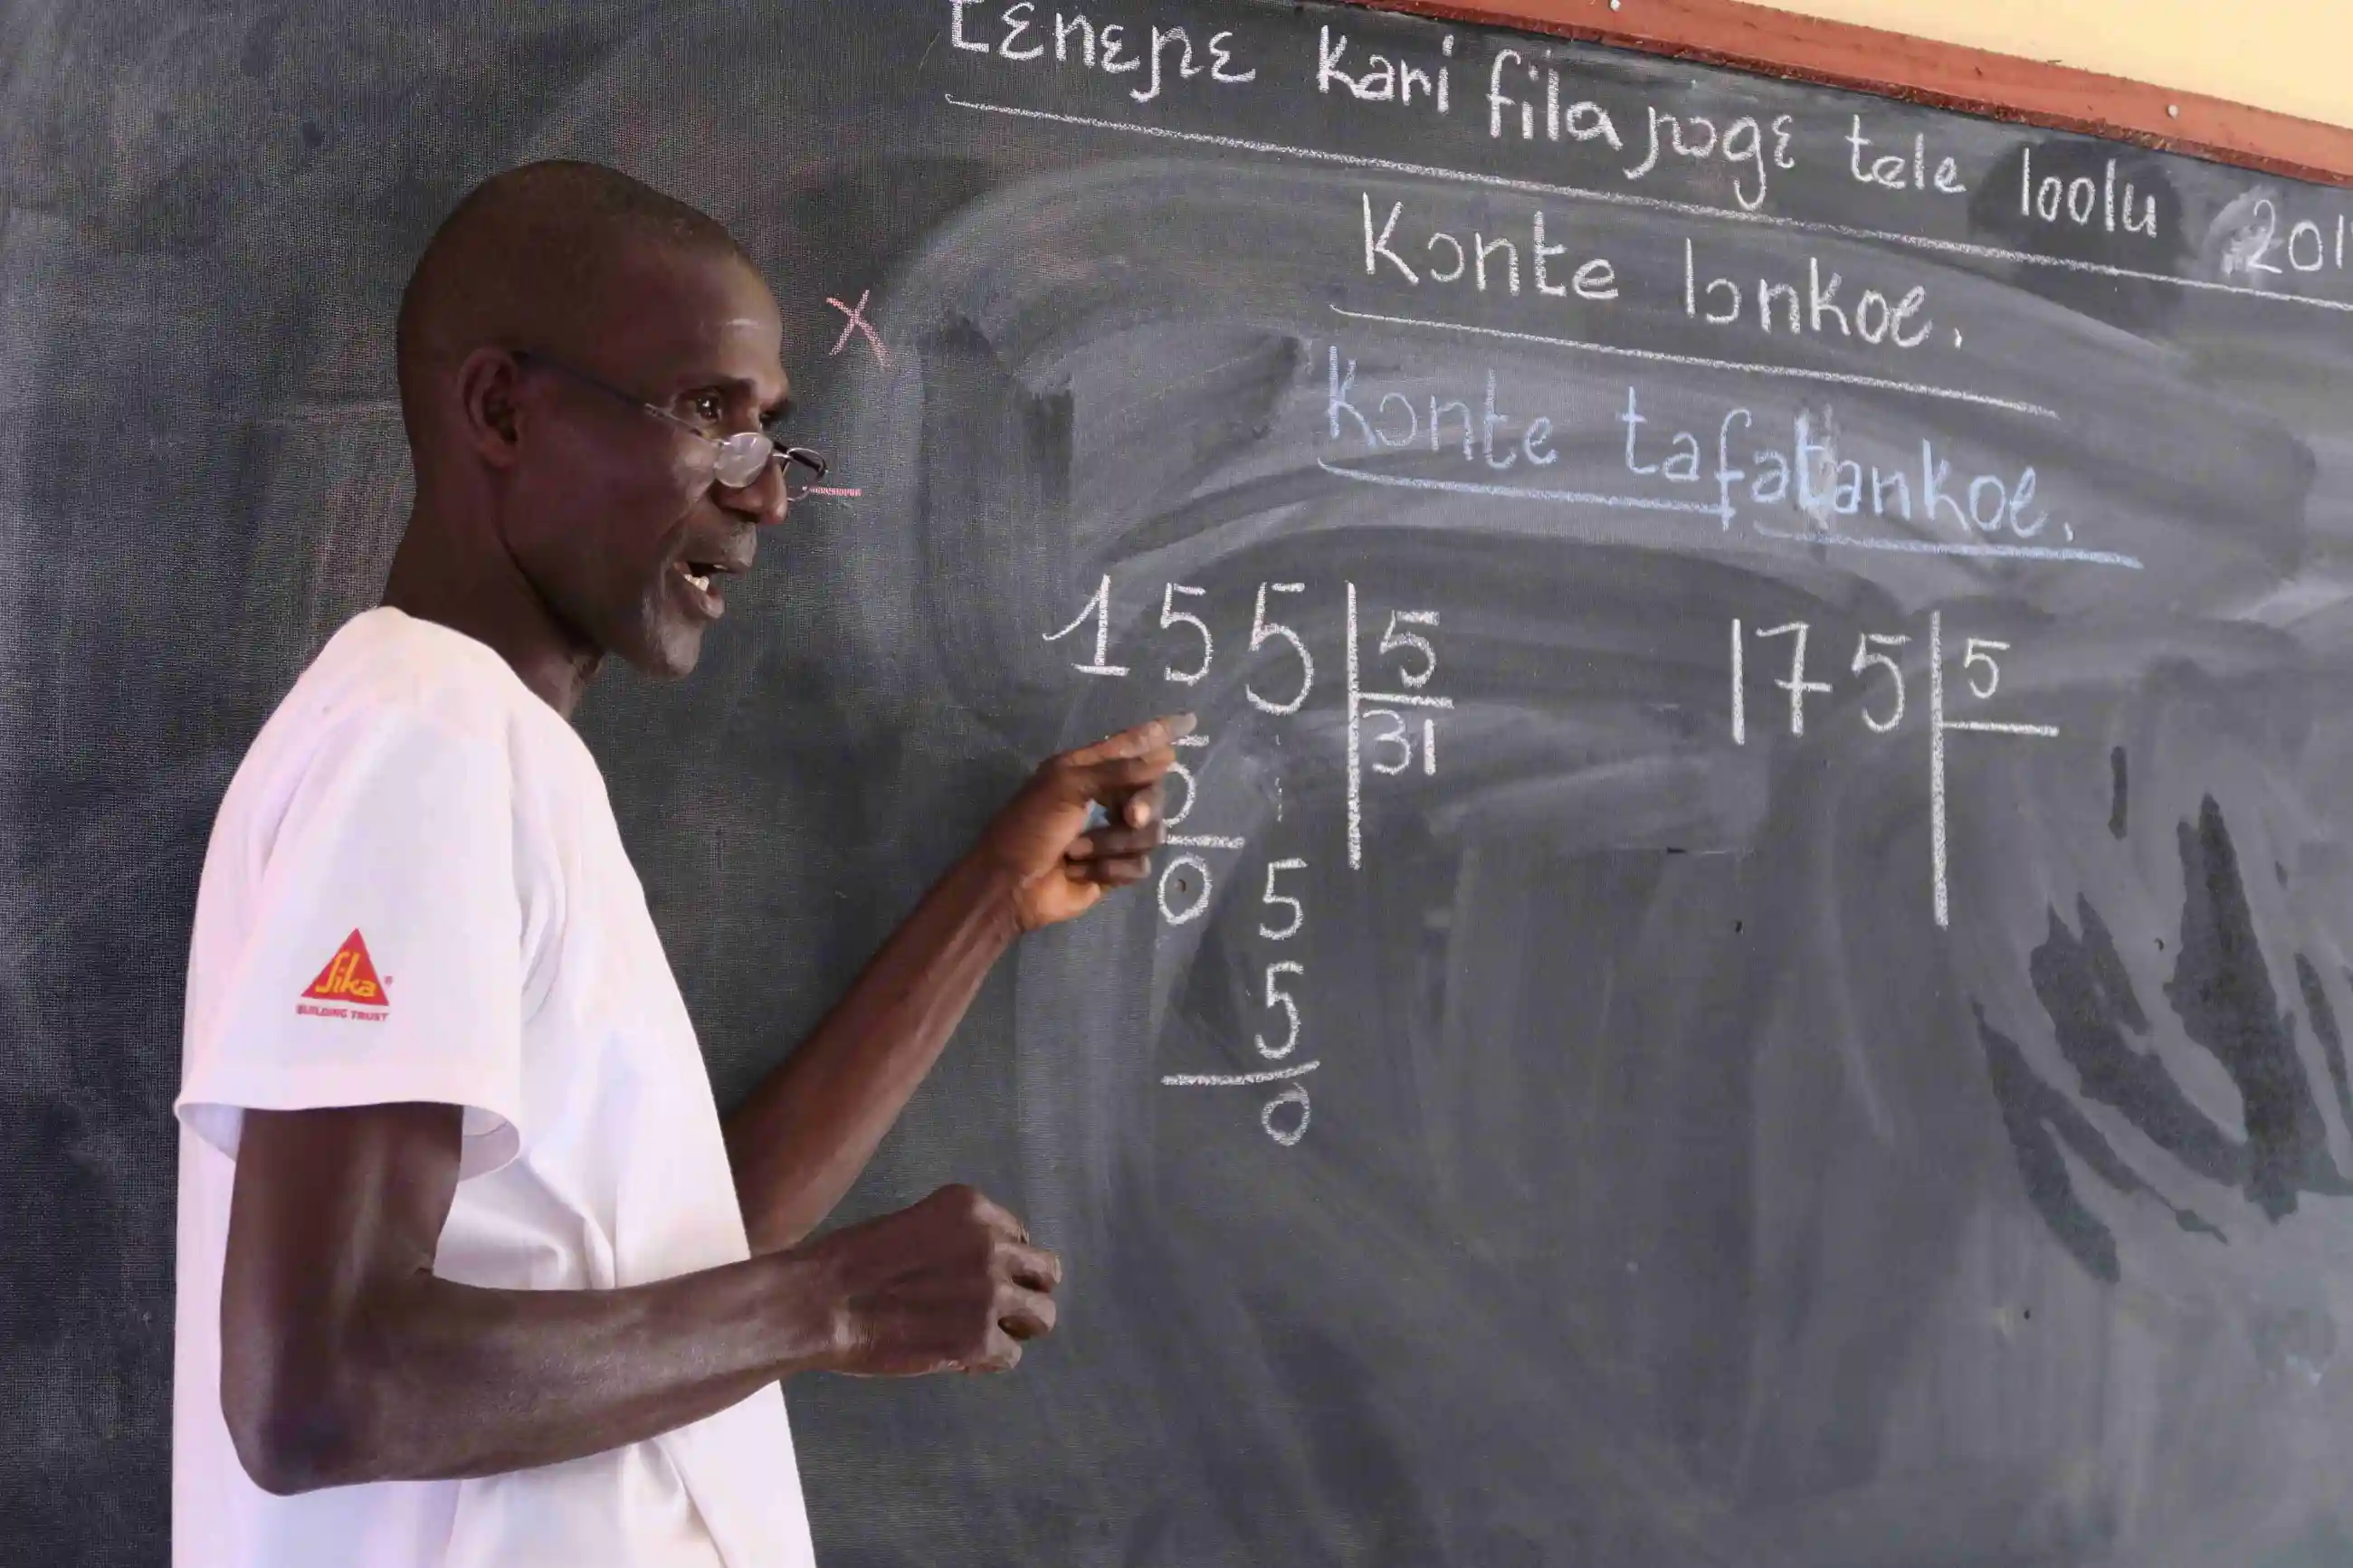 Tɛnɛɲɛ kari fila ɲɔgɛ tele loolu 201
Kɔnte lɔnkoe.
Kɔnte tafatankoe.
x
155 | 5
5 31
0 5
5
0
175 | 5
Sika®
BUILDING TRUST